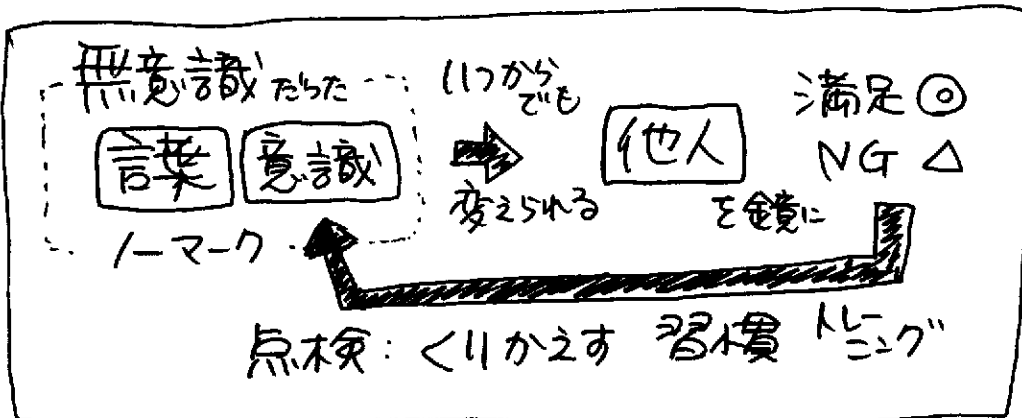 無意識だった
言葉 意識
ノーマーク
いつからでも
変えられる
他人
を鏡に
満足◎
NG △
点検：くりかえす 習慣 トレーニング